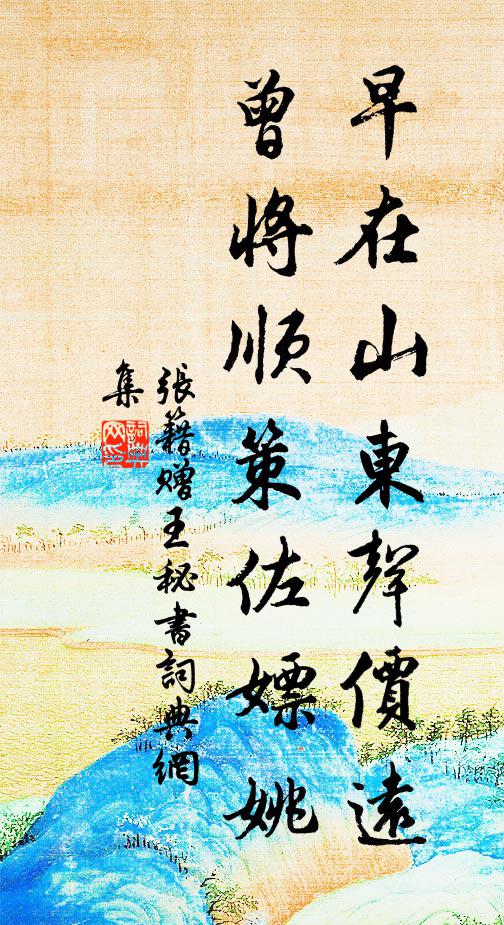 早在山東聲價遠
曾將順策佐嫖姚
張籍贈王秘書詞典網
集